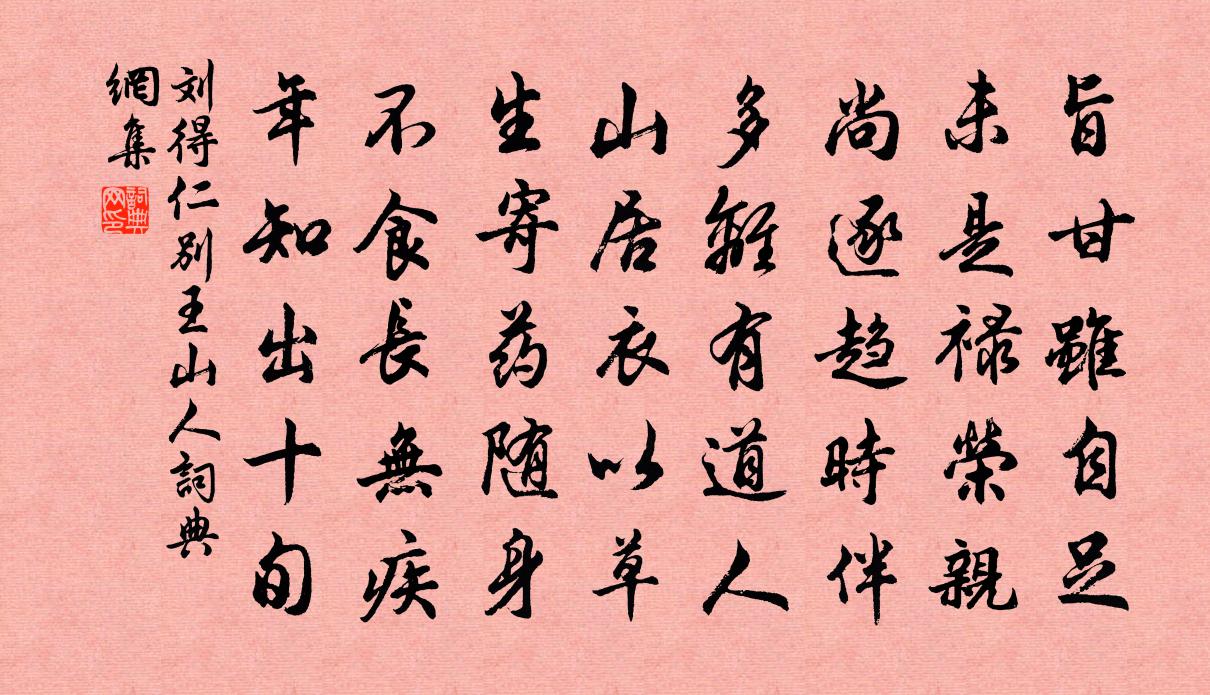 旨甘雖自足
未是禄榮親
尚逐趋時伴
多離有道人
山居衣以草
生寄药随身
不食長無疾
年知出十旬
刘得仁别王山人詞典
網集
詞典
网印